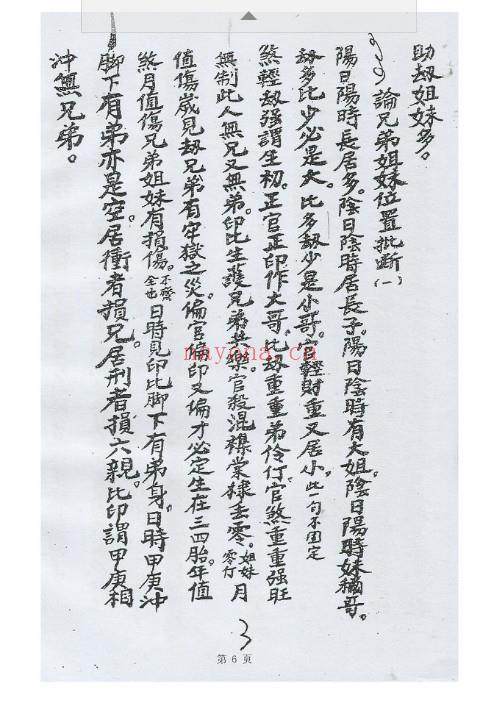 助劫姐妹多。
論兄弟姐妹位置批断(一)
陽日陽時長居多。陰日陰時居長子。陽日陰時有大姐。陰日陽時妹稱哥。
劫多比少必是大。比多劫少是小哥。官輕財重又居小。此一句不固定
煞輕劫强謂生初。正官正印作大哥。比劫重重弟伶仃。官煞重重强旺
無制此人無兄又無弟。印比生護兄弟共樂。官殺混襍棠棣丢零。姐妹零仃月
值傷歲見劫兄弟有牢獄之災。偏官偏印又偏才必定生在三四胎。年值
煞月值傷兄弟姐妹有損傷。不齊全也日時見印比脚下有弟身。日時甲庚沖
脚下有弟亦是空。居衝者損兄。居刑者損六親。比印謂甲庚相
沖無兄弟。
nayona.cn
3
第 6 頁